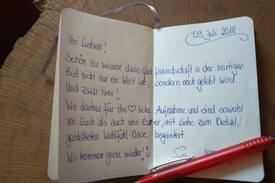 09. Juli 2018
Ihr Lieben!
Schön zu wissen, dass Gastfreundschaft in der heutigen
Zeit nicht nur ein Wort ist, sondern noch gelebt wird.
Und zwar hier!
Wir danken für die ♡liche Aufnahme und sind sowohl
von Euch als auch von Eurer, mit Liebe zum Detail,
gestalteten Wohlfühl-Oase begeistert.
Wir kommen gerne wieder!